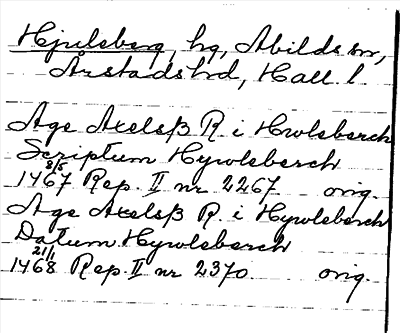 Hjulsberg, hg, Abilds sn,
Årstads hd, Hall. l.
Age Axelsß R. i Hwlsberch
Scriptum Hywlsberch
8/5
1467 Rep. II nr 2267 orig.
Age Axelsß R. i Hywlsberch
Datum Hywlsberch
21/1
1468 Rep. II nr 2370. orig.